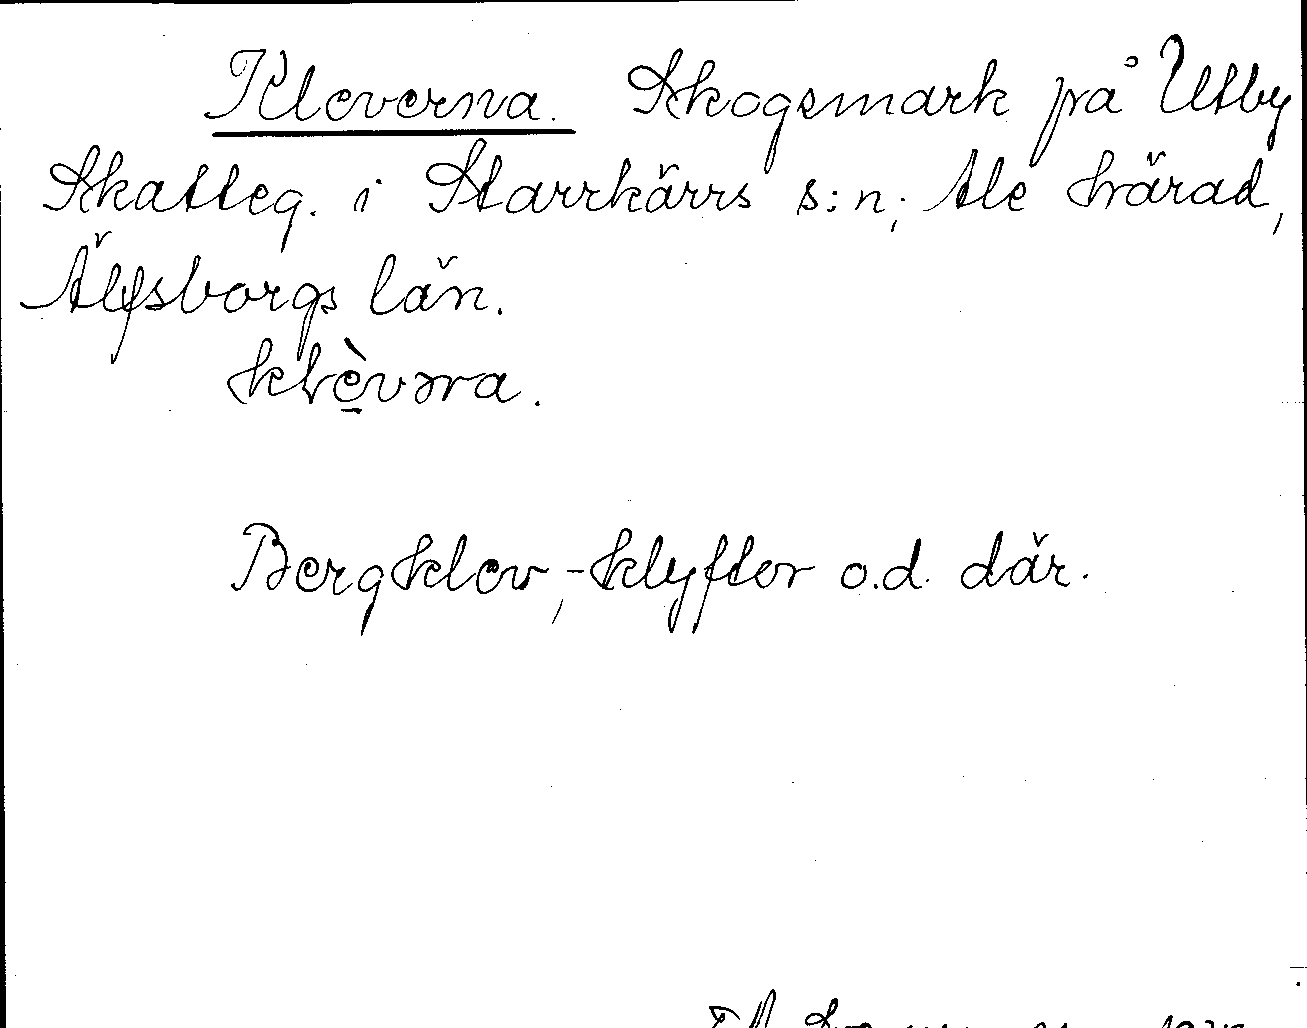 Kleverna. Skogsmark på Utby
Skatteg. i Starrkärrs s:n, Ale härad,
Älfsborgs län.
klèvəra.
Bergsklev, -klyftor o.d. där.